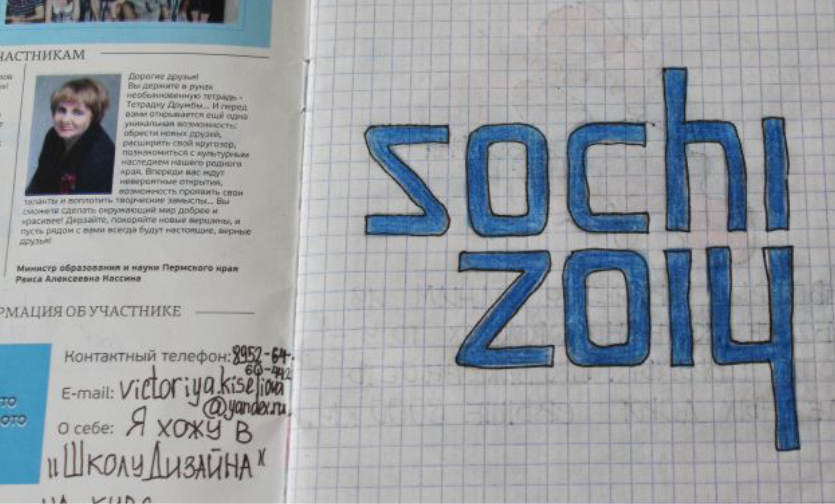 ЧАСТНИКАМ
Дорогие друзья!
Вы держите в руках
необыкновенную тетрадь -
Тетрадку Дружбы... И перед
вами открывается ещё одна
уникальная возможность:
обрести новых друзей,
расширить свой кругозор,
познакомиться с культурным
наследием нашего родного
края. Впереди вас ждут
невероятные открытия,
возможность проявить свои
таланты и воплотить творческие замыслы... Вы
сможете сделать окружающий мир добрее и
красивее! Дерзайте, покоряйте новые вершины, и
пусть рядом с вами всегда будут настоящие, верные
друзья!
Министр образования и науки Пермского края
Раиса Алексеевна Кассина
РМАЦИЯ ОБ УЧАСТНИКЕ
Контактный телефон: 8952-64-
60-442
E-mail: victoriya.kiseliova
@yandex.ru
О себе: Я хожу в
"Школу Дизайна"
на курс
sochi
2014